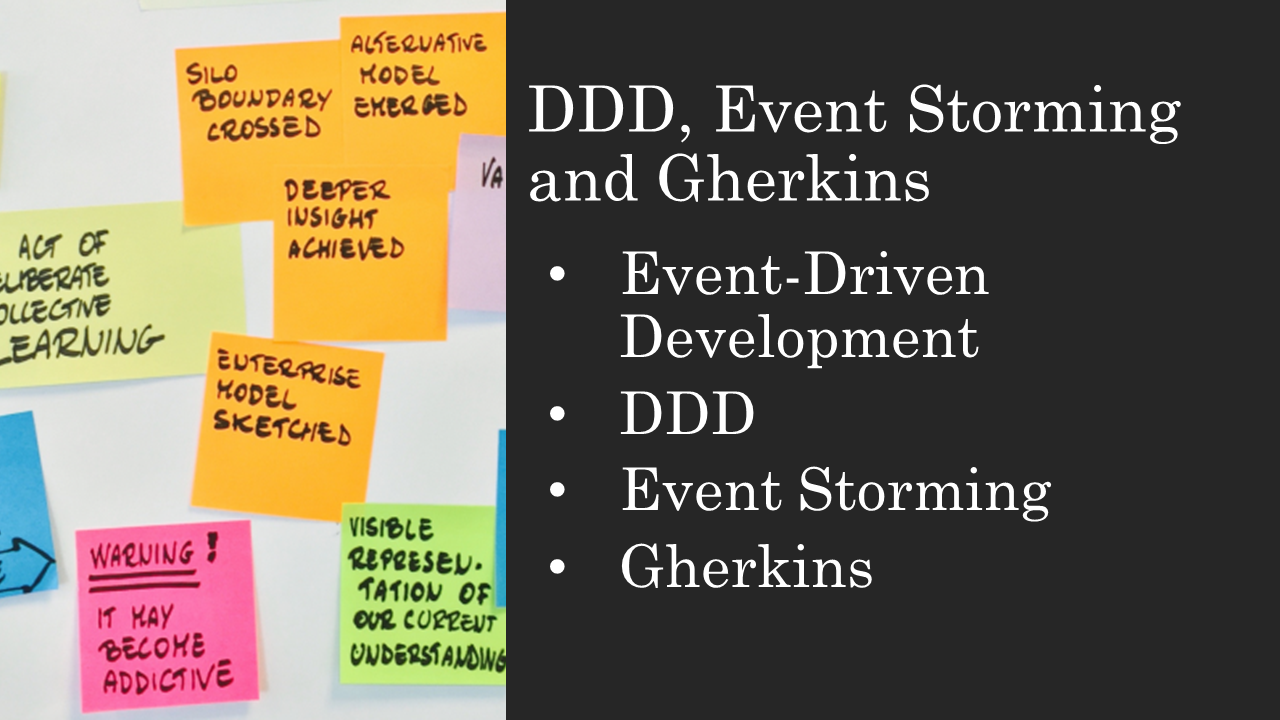 SILO
BOUNDARY
CROSSED
ALTERNATIVE
MODEL
EMERGED
DEEPER
INSIGHT
ACHIEVED
VA
ACT OF
ELIBERATE
OLLECTIVE
LEARNING
ENTERPRISE
MODEL
SKETCHED
WARNING!
IT MAY
BECOME
ADDICTIVE
VISIBLE
REPRESEN-
TATION OF
OUR CURRENT
UNDERSTANDING
DDD, Event Storming
and Gherkins
• Event-Driven
Development
• DDD
• Event Storming
• Gherkins